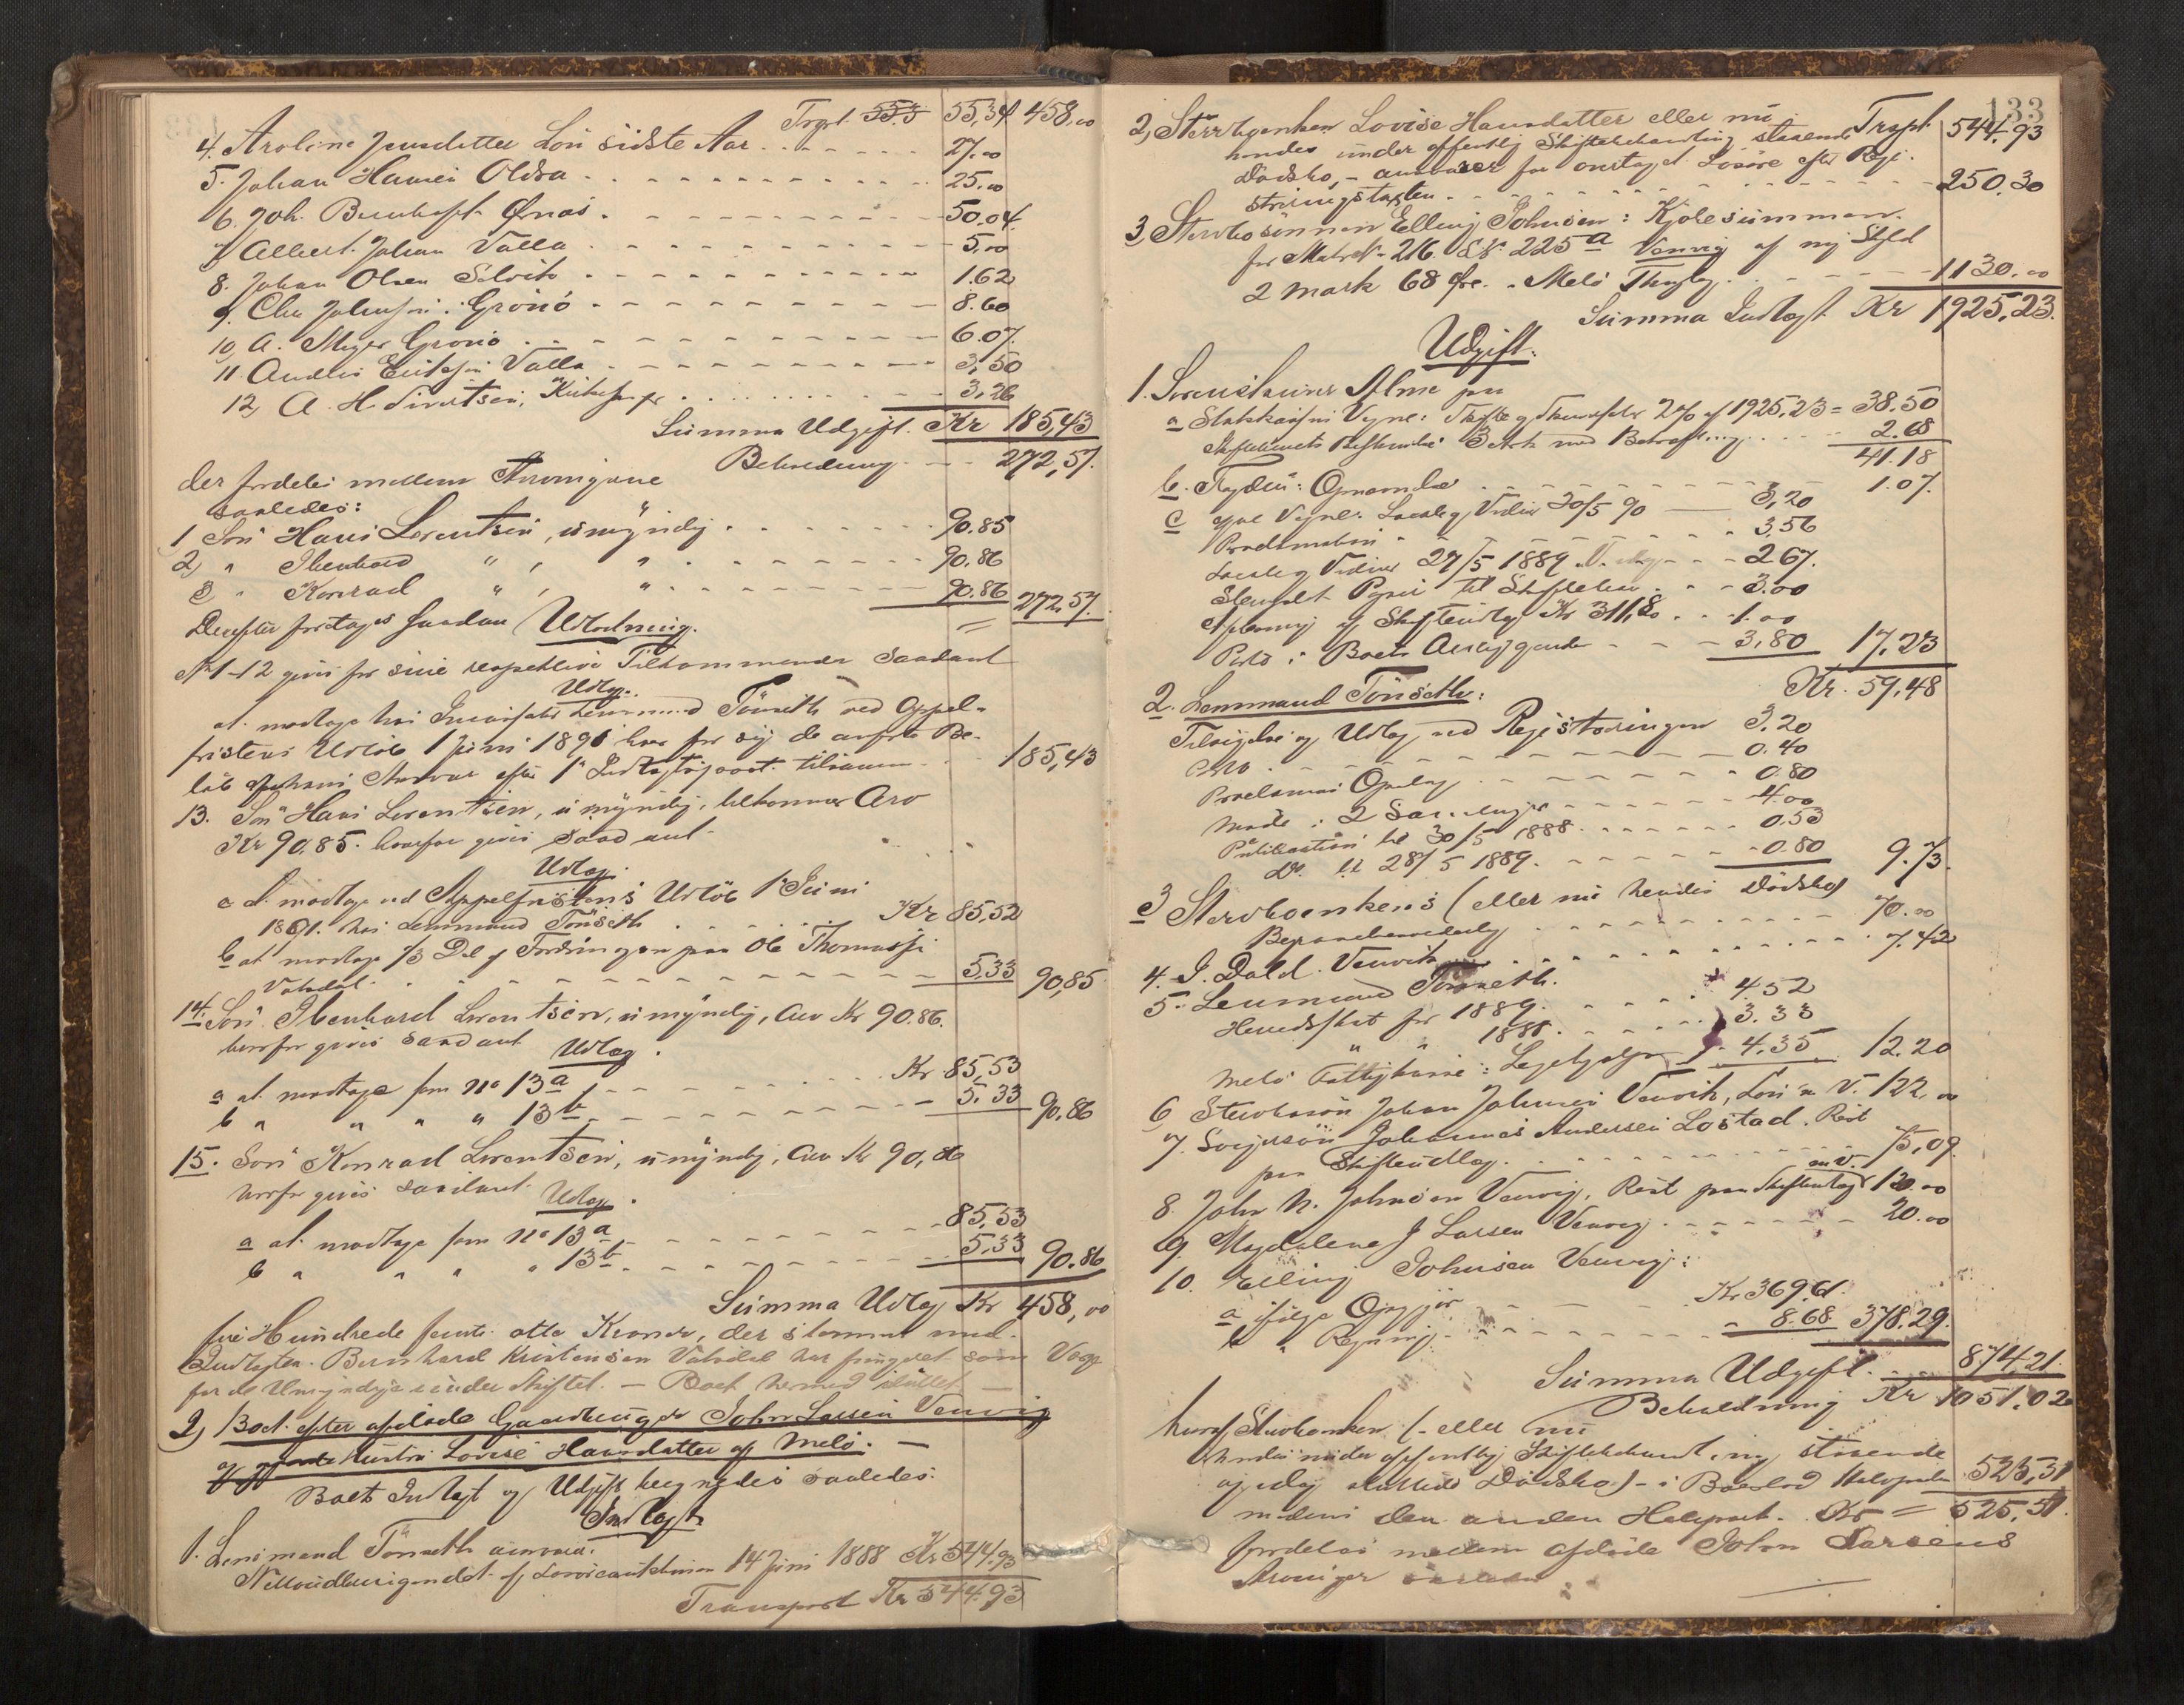 Trspt. 553 55,34 458,00
4. Aroline Jensdatter Lön sidste Aar 27.00
5. Johan Hansen Oldra 25.00
6. Joh. Bernhoft Ørnes 50.04
7 Albert Johan Valla 5,00
8. Johan Olsen Selvik 1.62
9. Chr Johnsen Grönö 8.60
10, A. Meyer Grönö 6.07.
11. Anders Eriksen Valla 3,50
12, A. H. Sivertsen, 3,26
Summa Udgift. Kr 185,43
Beholdning 272,57.
der fordeles mellem Arvingerne
saaledes:
1 Sön Hans Lorentsen, umyndig 90.85
2, " Ibenhard " , " 90.86
3 " Konrad " , " 90.86 272,57.
Derefter foretages saadan Udlodning.
No 1-12 gives for sine respektive Tilkommender saadant
Udlæg.
at modtage hos Lensmand Tönseth ved Appel-
fristens Udlöb 1 Juni 1891 hver for sig de anförte Be-
löb af hans Ansvar efter 1e Indtægtspost. tilsammen 185,43
13. Sön Hans Lorentsen, umyndig, tilkommer Arv
Kr 90.85. hvorfor gives saadant
Udlæg.
a at modtage ved Appelfristens Udlöb 1 Juni
1891. hos Lensmand Tönseth Kr 85,52
b at modtage 1/3 Del af Fordringen paa Ole Thomassen
Vatsdal 5.33 90,85
14. Sön Ibenhard Lorentsen, umyndig, Arv Kr 90.86.
hvorfor gives saadant Udlæg.
a at modtage som No 13a Kr. 85,53
b " " " " 13b 5.33 90,86
15. Sön Konrad Lorentsen, umyndig, Arv Kr 90,86
hvorfor gives saadant Udlæg.
a at modtage som No 13a 85,53
b " " " " 13b. 5.33 90.86
Summa Udlæg Kr 458,00
fire Hundrede femti otte Kroner, der stemmer med
Indtægten. Bernhard Kristensen Vatsdal har fungeret som Værge
for de Umyndige under Skiftet. — Boet hermed sluttet —
2, Boet efter afdöde Gaardbruger John Larsen Venvig
Hustru Lovise Hansdatter af Melö. —
Boets Indtægt og Udgift beregnedes saaledes:
Indtægt.
1. Lensmand Tönseth ansvarer
Nettoudbringendet af Lösöreauktionen 14 Juni 1888 Kr 544.93
Transport Kr 544.93
133
2, Stervboenken Lovise Hansdatter eller nu Trspt. 544.93
hendes under offentlig Skiftebehandling staaende
Dödsbo, - ansvarer for modtaget Lösöre efter Regi-
streringstaxten 250.30
3, Stervbosönnen Elling Johnsen: Kjöbesummen
for Matr No 216. LN. 225a Venvig af ny Skyld
2 Mark 68 Öre. Melö Thinglag 1130.00
Summa Indtægt Kr 1925.23.
Udgift.
1. Sorenskriver Alme paa
a Statskassens Vegne: Skifte 2% af 1925,23 = 38.50
3 Ark med 2.68
41.18
b. 1.07.
c egne Vegne. 20/5 90 3,20
Proclamation 3,56
27/5 1889 2.67.
Stemplet Papir til Skiftebrev 3.00
af Skifteudlæg Kr 311,80 1.00
Porto i Boets Anliggender 3,80 17.23
Kr. 59,48
2. Lensmand Tönseth:
Tilsigelse og Udlæg ved Registreringen 3.20
Porto 0.40
Proclamas Opslag 0.80
Möde i 2 Samlinger 4.00
Publikation til 30/5 1888 0.53
Do. til 28/5 1889 0.80 9.73.
3, Stervboenkens (eller nu hendes Dödsbo)
Begravelsesudlæg 70.00
4. J. Dahl. Venvik 7.42
5. Lensmand Tönseth.
Herredsskat for 1889 4.52
" " 1888 3.33
Melö Fattigkasse: Lægehjælp 4.35 12.20
6 Stervbosön Johan Johnsen Venvik, Lön m V. 122.00
7. Svigersön Johannes Andersen Lostad. Rest
paa Skifteudlæg 75,09.
8. John N. Johnsen Venvig, Rest paa Skifteudlæg m. V. 120.00
9. Magdalena J Larsen Venvig 20.00
10. Elling Johnsen Venvig:
a ifölge Opgjör Kr 369,61.
b " Regning " 8.68 378.29.
Summa Udgift. 874.21.
Beholdning Kr 1051.02
hvoraf Stervboenken (- eller nu
hendes under offentlig Skiftebehandling staaende
Dödsbo) - i Boeslod Halvparten 525,51
medens den anden Halvpart. Kr = 525,51.
fordeles mellem afdöde John Larsens
Arvinger saaledes: